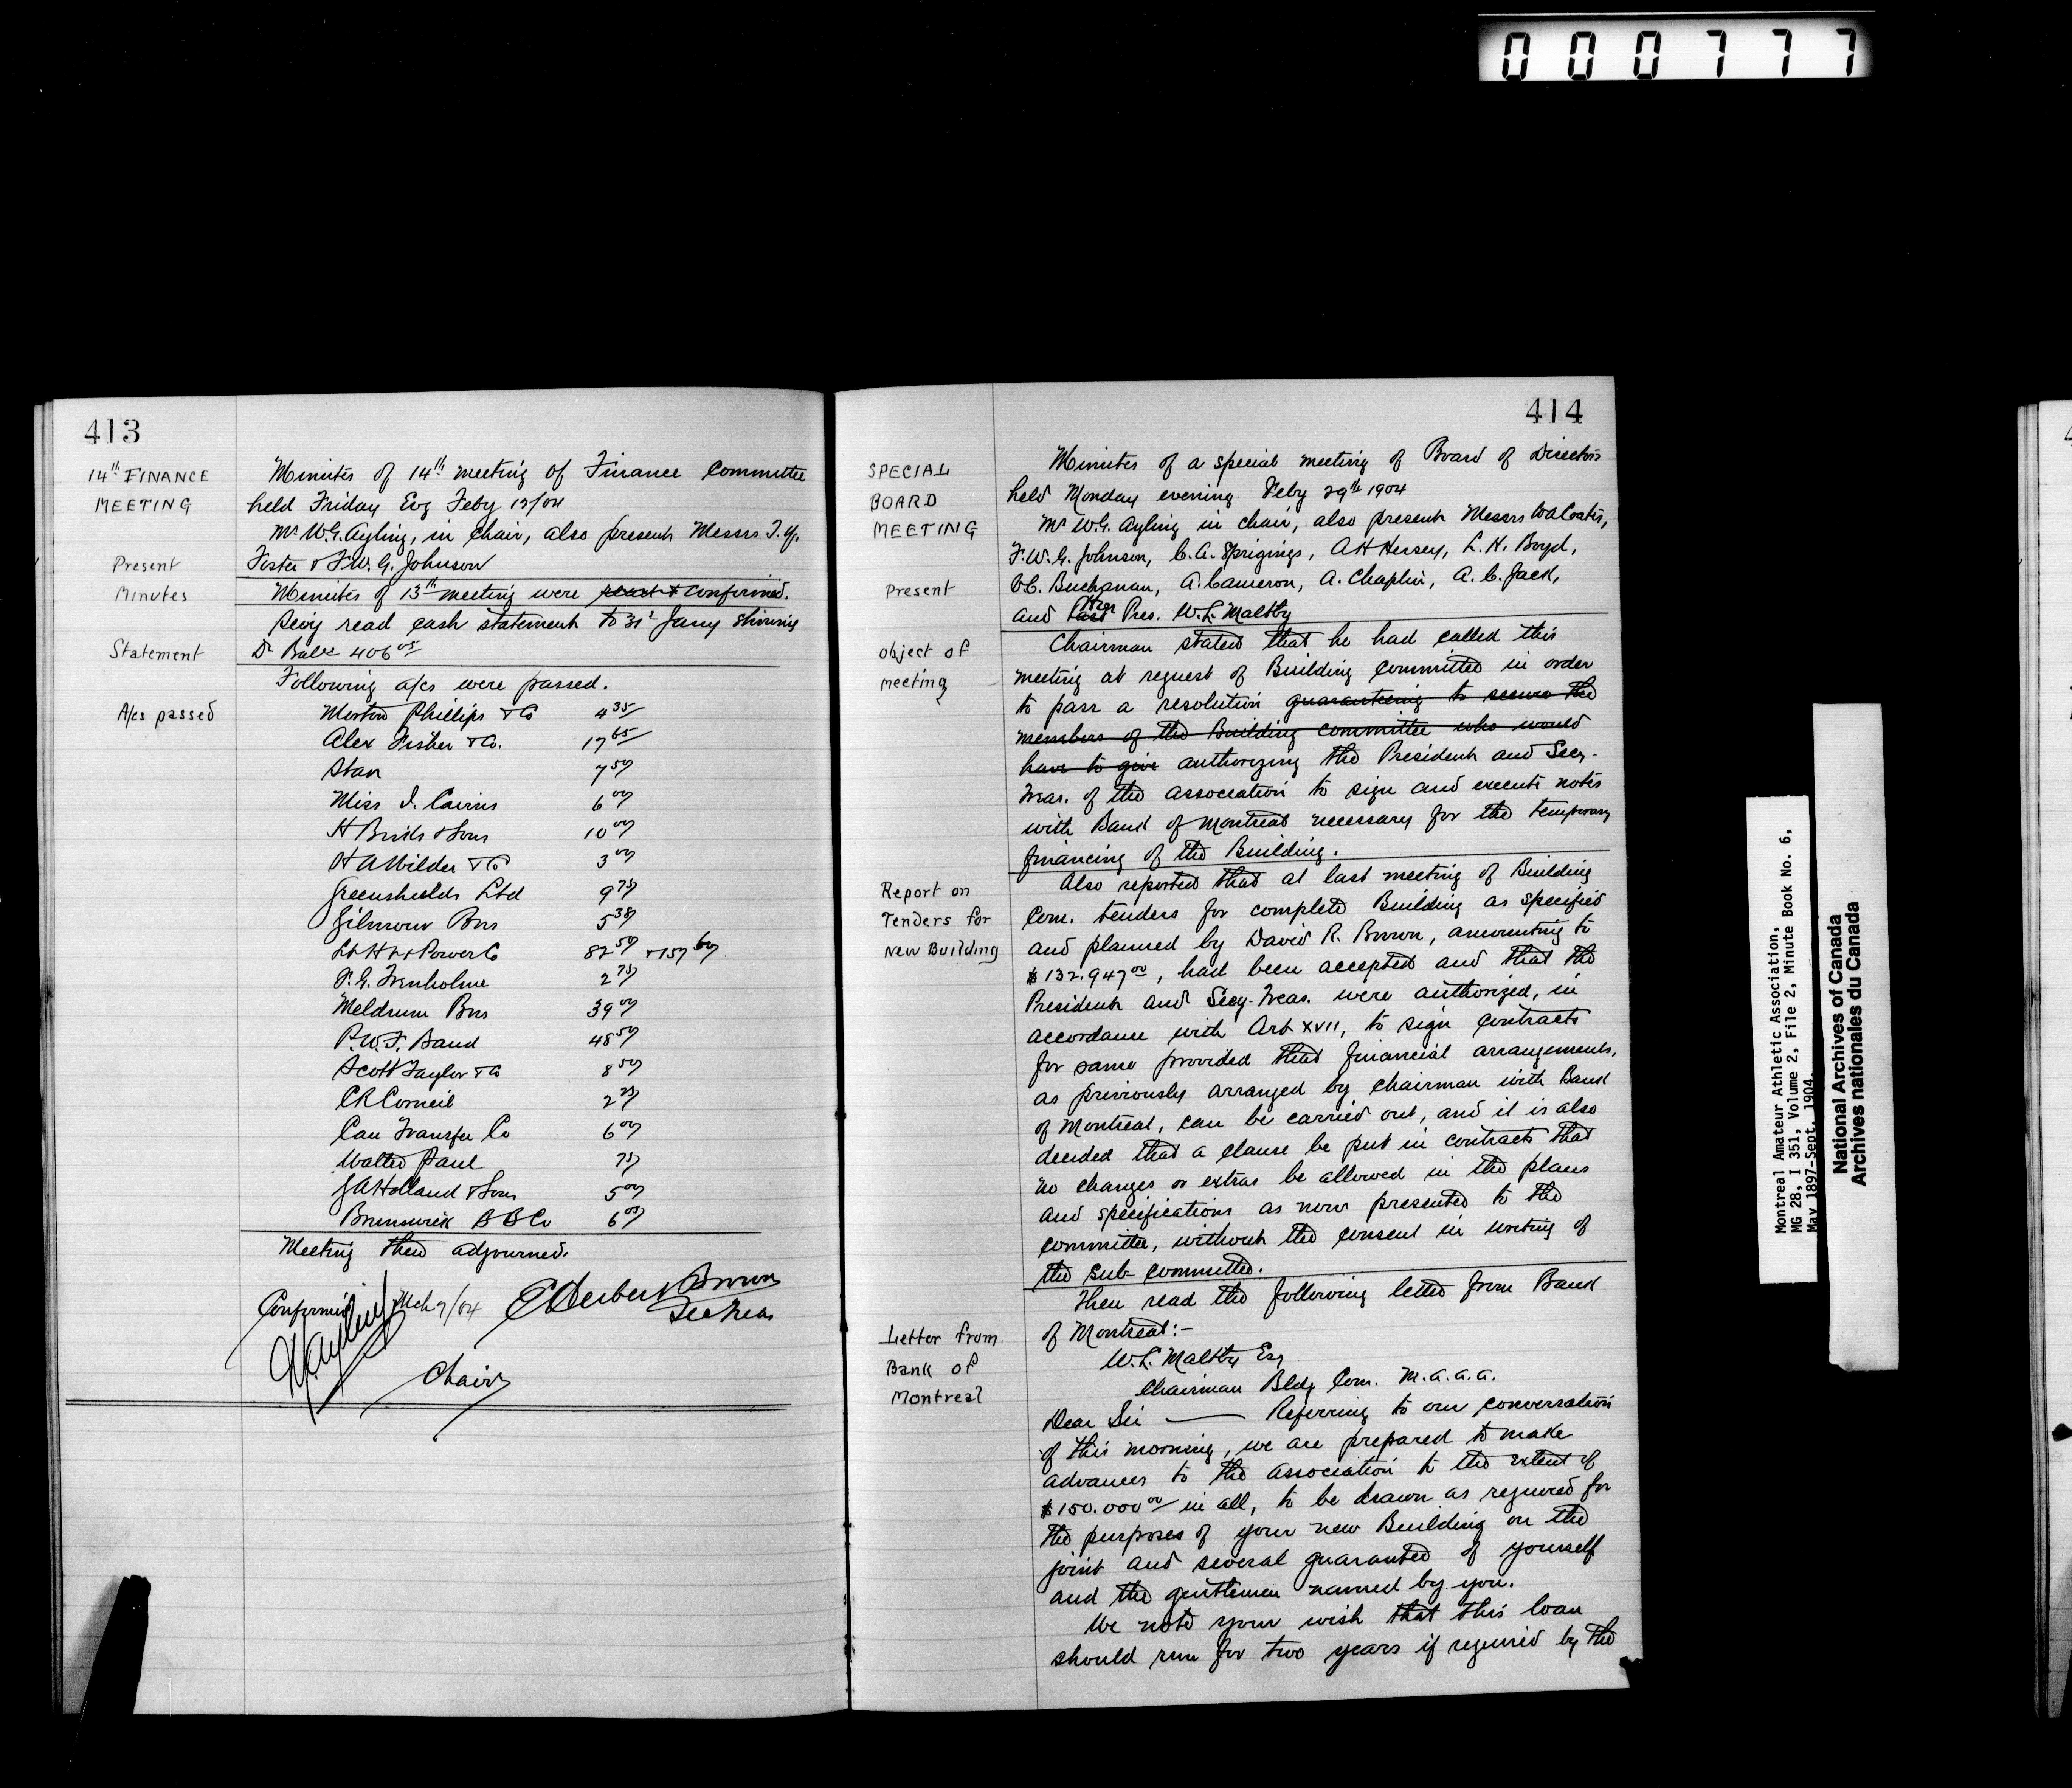 000777
413
14th FINANCE MEETING
Minutes of 14th meeting of Finance Committee
held Friday Evg Feby 12/04
Mr W.G. Ayling, in Chair, also present Messrs T. Y.
Present
Foster & F.W.G. Johnson
Minutes
Minutes of 13th meeting were read & confirmed.
Secy read cash statement to 31st Jany showing
Statement
Dr Balce 406 05
Following a/cs were passed.
A/cs passed
Morton Phillips & Co 4 35
Alex Fisher & Co. 17 65
Star 7 50
Miss I. Cairns 6 00
H Birks & Sons 10 00
H A Wilder & Co 3 00
Greenshields Ltd 9 75
Gilmour Bros 5 38
Lt Ht & Power Co 82 50 + 157 60
T. G. Trenholme 2 75
Meldrum Bros 39 00
P.W.F. Band 48 50
Scott Taylor & Co 8 50
C R Corneil 2 25
Can Transfer Co 6 00
Walter Paul 75
J A Holland & Sons 5 00
Brunswick B B Co 6 05
Meeting then adjourned.
Confirmed Mch 7/04 E Herbert Brown
Sec Treas
W G Ayling
Chair
414
SPECIAL BOARD MEETING
Minutes of a special meeting of Board of Directors
held Monday evening Feby 29th 1904
Mr W.G. Ayling in chair, also present Messrs W A Coates,
F.W.G. Johnson, C.A. Sprigings, A H Hersey, L.H. Boyd,
Present
W.C. Buchanan, A. Cameron, A. Chaplin, A.C. Jack,
and Past Hon Pres. W.L. Maltby
object of meeting
Chairman stated that he had called this
meeting at request of Building Committee in order
to pass a resolution guaranteeing to secure the
members of the Building committee who would
have to give authorizing the President and Secy-
Treas. of the association to sign and execute notes
with Bank of Montreal necessary for the temporary
financing of the Building.
Report on Tenders for New Building
Also reported that at last meeting of Building
Com. tenders for complete Building as specified
and planned by David R. Brown, amounting to
$132.947 00, had been accepted and that the
President and Secy-Treas. were authorized, in
accordance with Art XVII, to sign contracts
for same provided that financial arrangements,
as previously arranged by chairman with Bank
of Montreal, can be carried out, and it is also
decided that a clause be put in contracts that
no changes or extras be allowed in the plans
and specifications as now presented to the
committee, without the consent in writing of
the sub-committee.
Then read the following letter from Bank
of Montreal:-
Letter from Bank of Montreal
W.L. Maltby Esq
Chairman Bldg Com. M.A.A.A.
Dear Sir — Referring to our conversation
of this morning, we are prepared to make
advances to the association to the extent of
$150.000 00 in all, to be drawn as required for
the purposes of your new Building on the
joint and several guarantee of yourself
and the gentlemen named by you.
We note your wish that this loan
should run for two years if required by the
Montreal Amateur Athletic Association,
MG 28, I 351, Volume 2, File 2, Minute Book No. 6,
May 1897-Sept. 1904.
National Archives of Canada
Archives nationales du Canada